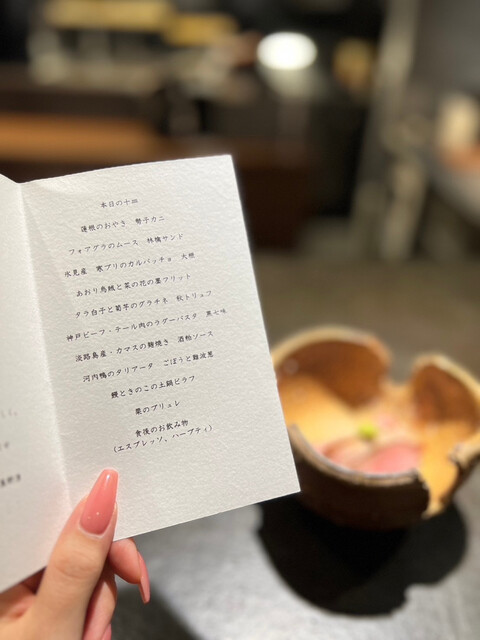 本日の十皿
蓮根のおやき 勢子カニ
フォアグラのムース 林檎サンド
氷見産 寒ブリのカルパッチョ 大根
あおり烏賊と菜の花の墨フリット
タラ白子と筍芋のグラチネ 秋トリュフ
神戸ビーフ・テール肉のラグーパスタ 黒七味
淡路島産・カマスの麹焼き 酒粕ソース
河内鴨のタリアータ ごぼうと難波葱
鰻ときのこの土鍋ピラフ
栗のブリュレ
食後のお飲み物
(エスプレッソ、ハーブティ)